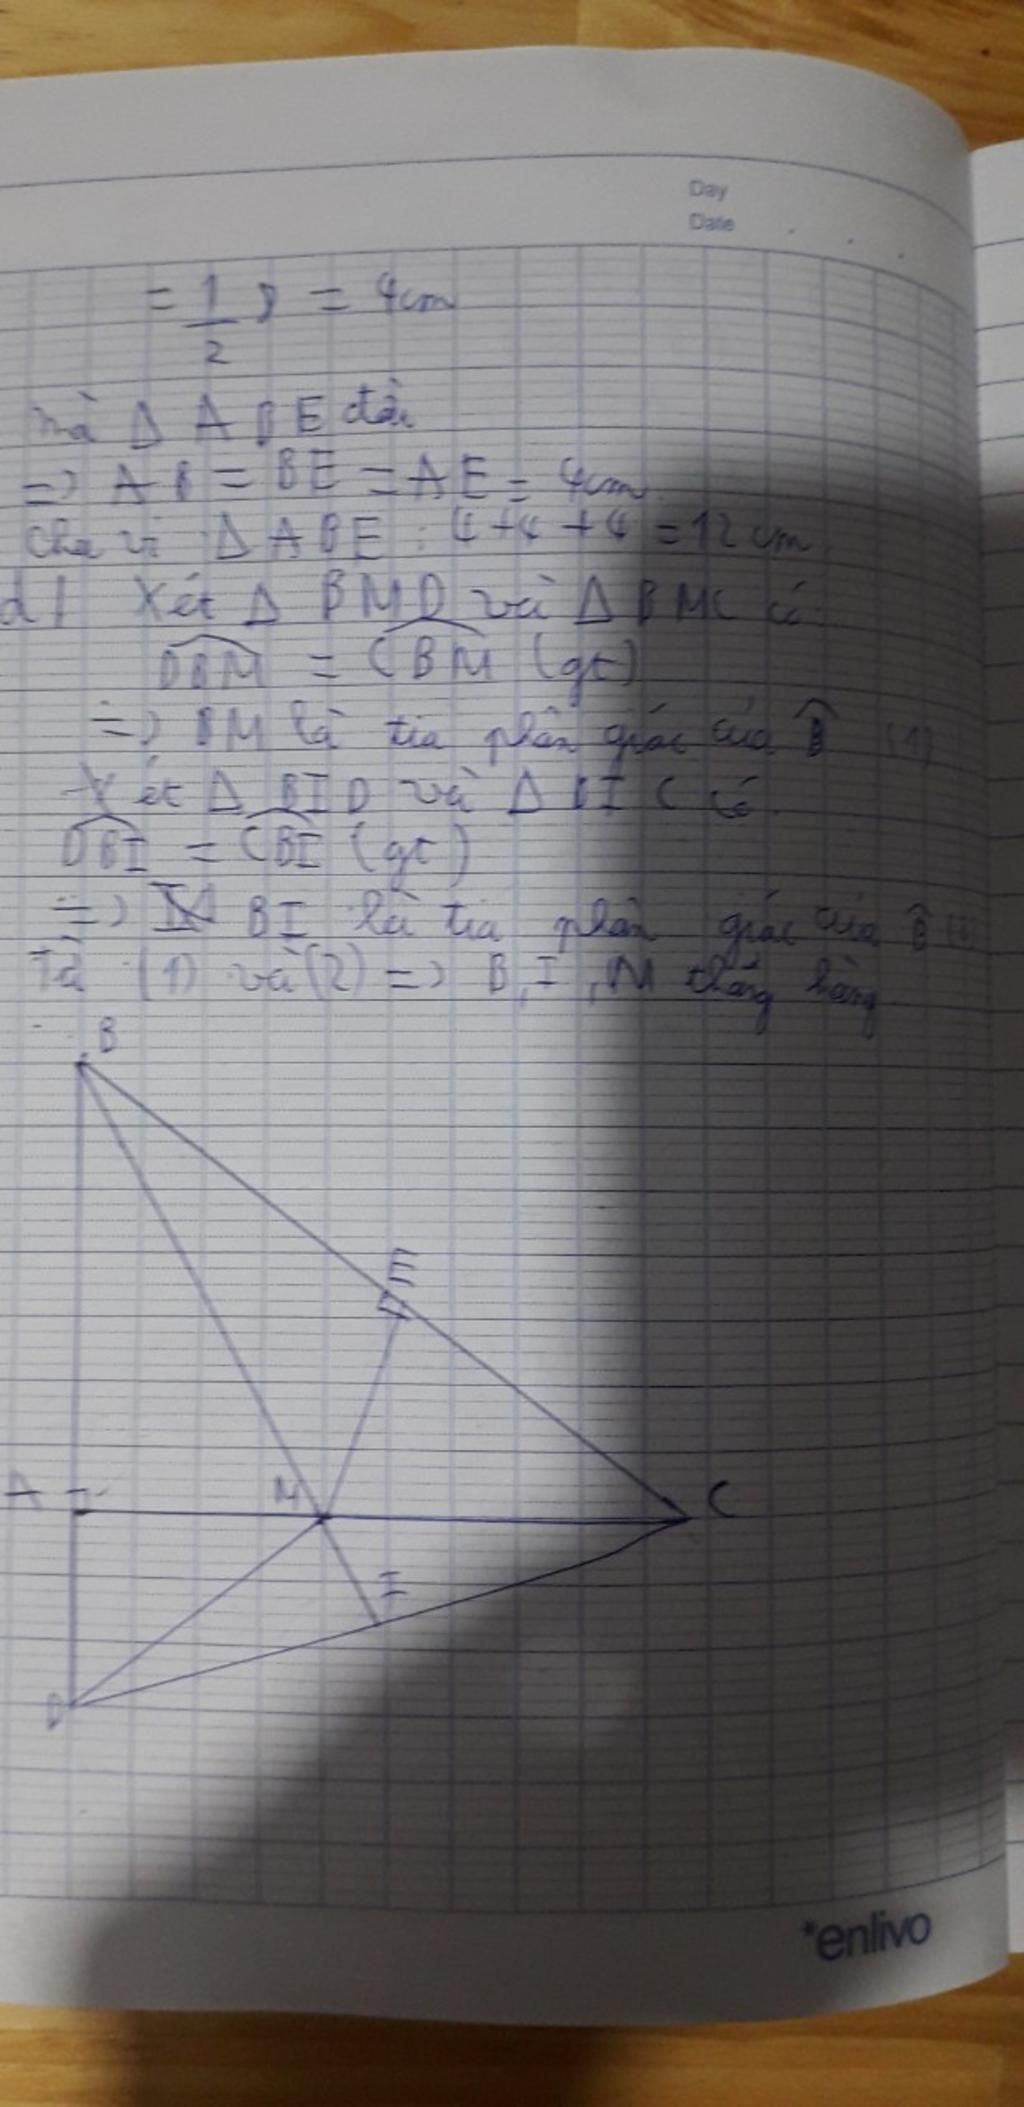 Day
Date
= 1/2 8 = 4cm
mà Δ ABE đều
=> AB = BE = AE = 4cm
Chu vi ΔABE: 4+4+4 = 12cm
d/ Xét Δ BMD và Δ BMC có
DBM = CBM (gt)
=> BM là tia phân giác của B (1)
Xét Δ BID và Δ BIC có
DBI = CBI (gt)
=> BI là tia phân giác của B (2)
Từ (1) và (2) => B, I, M thẳng hàng
B
E
A M C
I
D
*enlivo